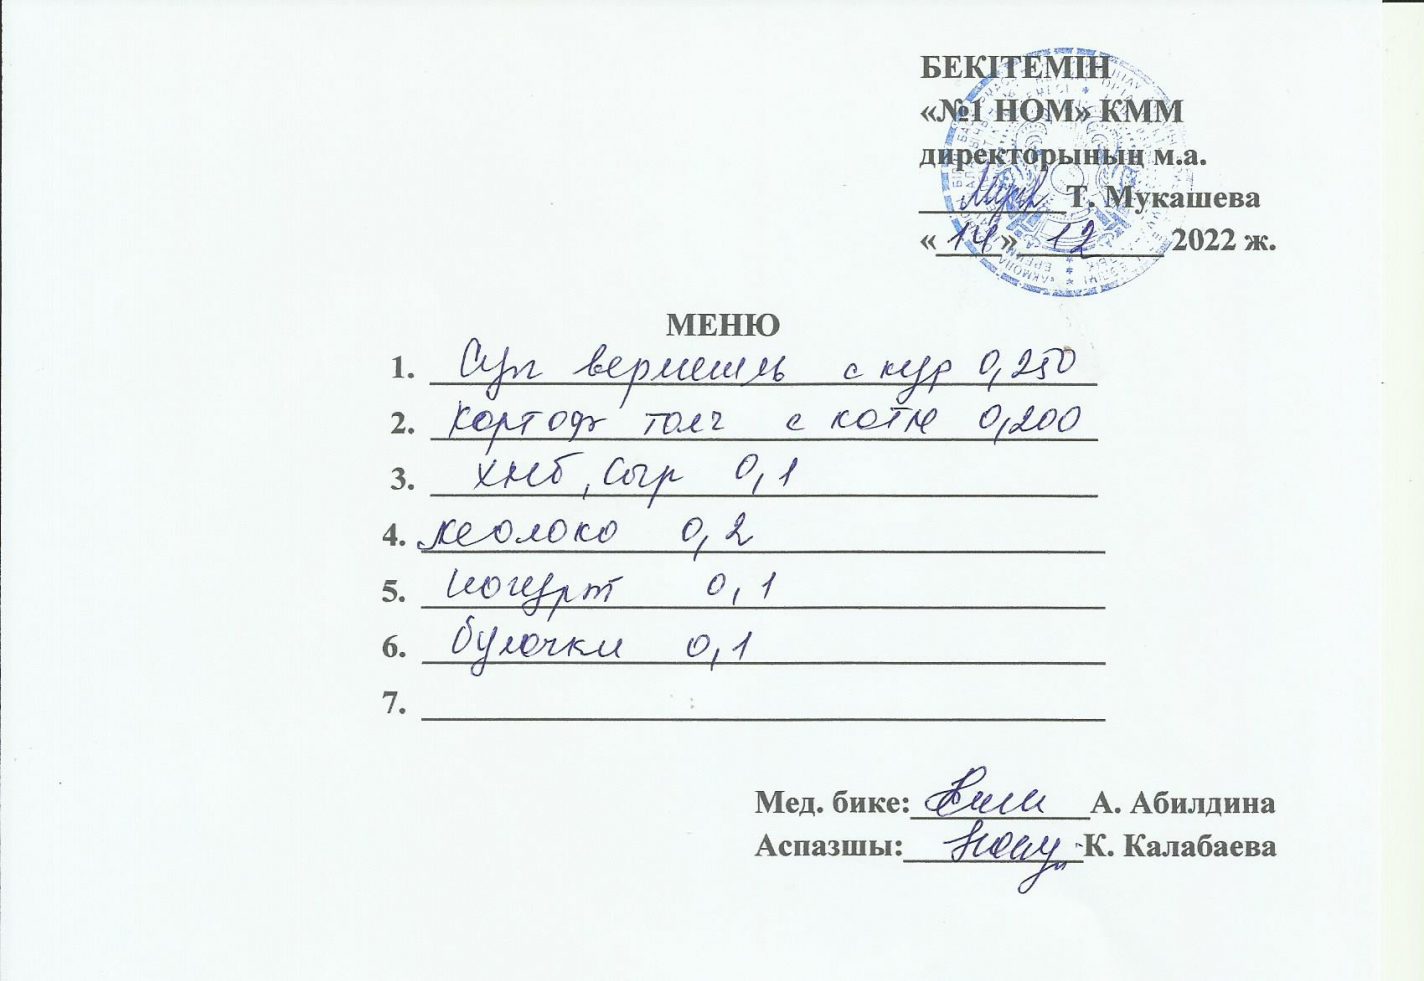 БЕКІТЕМІН
«№1 НОМ» КММ
директорының м.а.
Т. Мукашева
«14» 12 2022 ж.
МЕНЮ
1. Суп вермешль с кур 0,250
2. Картоф толч с котле 0,200
3. хлеб, сыр 0,1
4. молоко 0,2
5. йогурт 0,1
6. булочки 0,1
7.
Мед. бике: А. Абилдина
Аспазшы: К. Калабаева